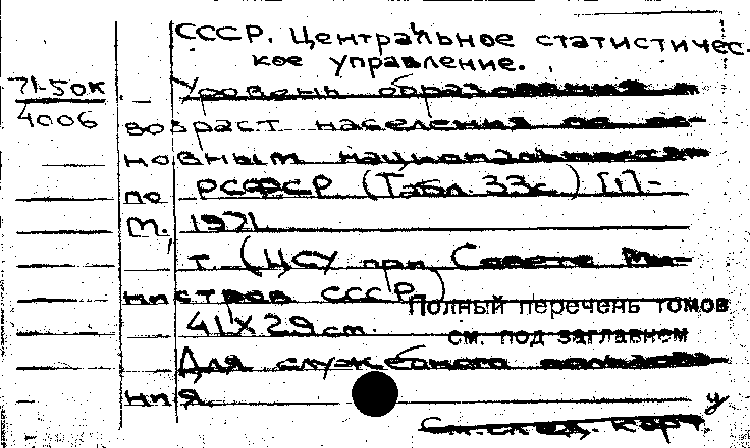 СССР. Центральное статистичес-
кое управление.
71-50к
4006
Уровень образования и
возраст населения по ос-
новным национальностям
по РСФСР (Табл. 33с) [1]-
т. 1971
т (ЦСУ при Совете Ми-
нистров СССР)
Полный перечень томов
41х29 см.
см. под заглавием
Для служебного пользова-
ния.
у
См. след. карт.